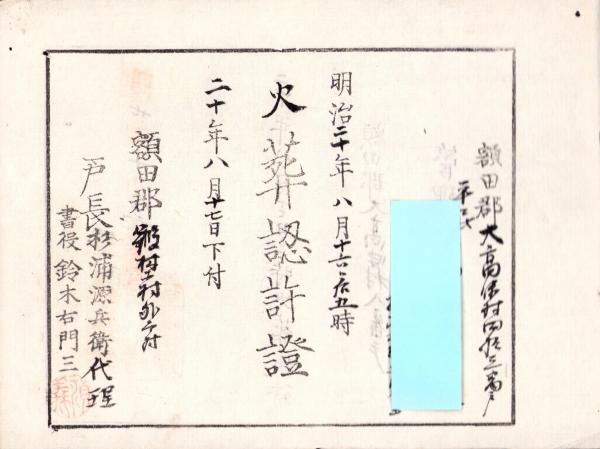 額田郡大高味村四拾三番戸
平民
明治二十年八月十六日后五時
火葬認許證
二十年八月十七日下付
額田郡 村外 村
戸長杉浦源兵衛代理
書役鈴木右門三